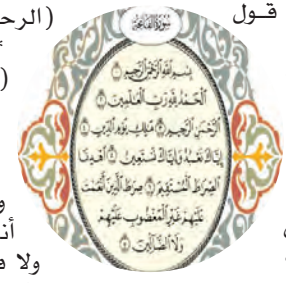 قول
(الرحـ
سُورَةُ الفَاتِحَة
(
بِسْمِ اللَّهِ الرَّحْمَٰنِ الرَّحِيمِ ۝١
الْحَمْدُ لِلَّهِ رَبِّ الْعَالَمِينَ ۝٢
الرَّحْمَٰنِ الرَّحِيمِ ۝٣ مَالِكِ يَوْمِ الدِّينِ ۝٤
إِيَّاكَ نَعْبُدُ وَإِيَّاكَ نَسْتَعِينُ ۝٥ اهْدِنَا
الصِّرَاطَ الْمُسْتَقِيمَ ۝٦ صِرَاطَ الَّذِينَ أَنْعَمْتَ
عَلَيْهِمْ غَيْرِ الْمَغْضُوبِ عَلَيْهِمْ
وَلَا الضَّالِّينَ ۝٧
و
أنـ
ولا